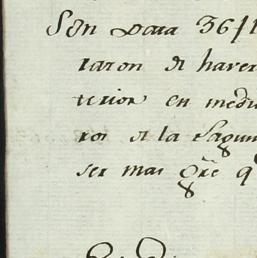 Son para 36/1
raron de haver
terior en medi
ros de la Segun
ser mas gre q